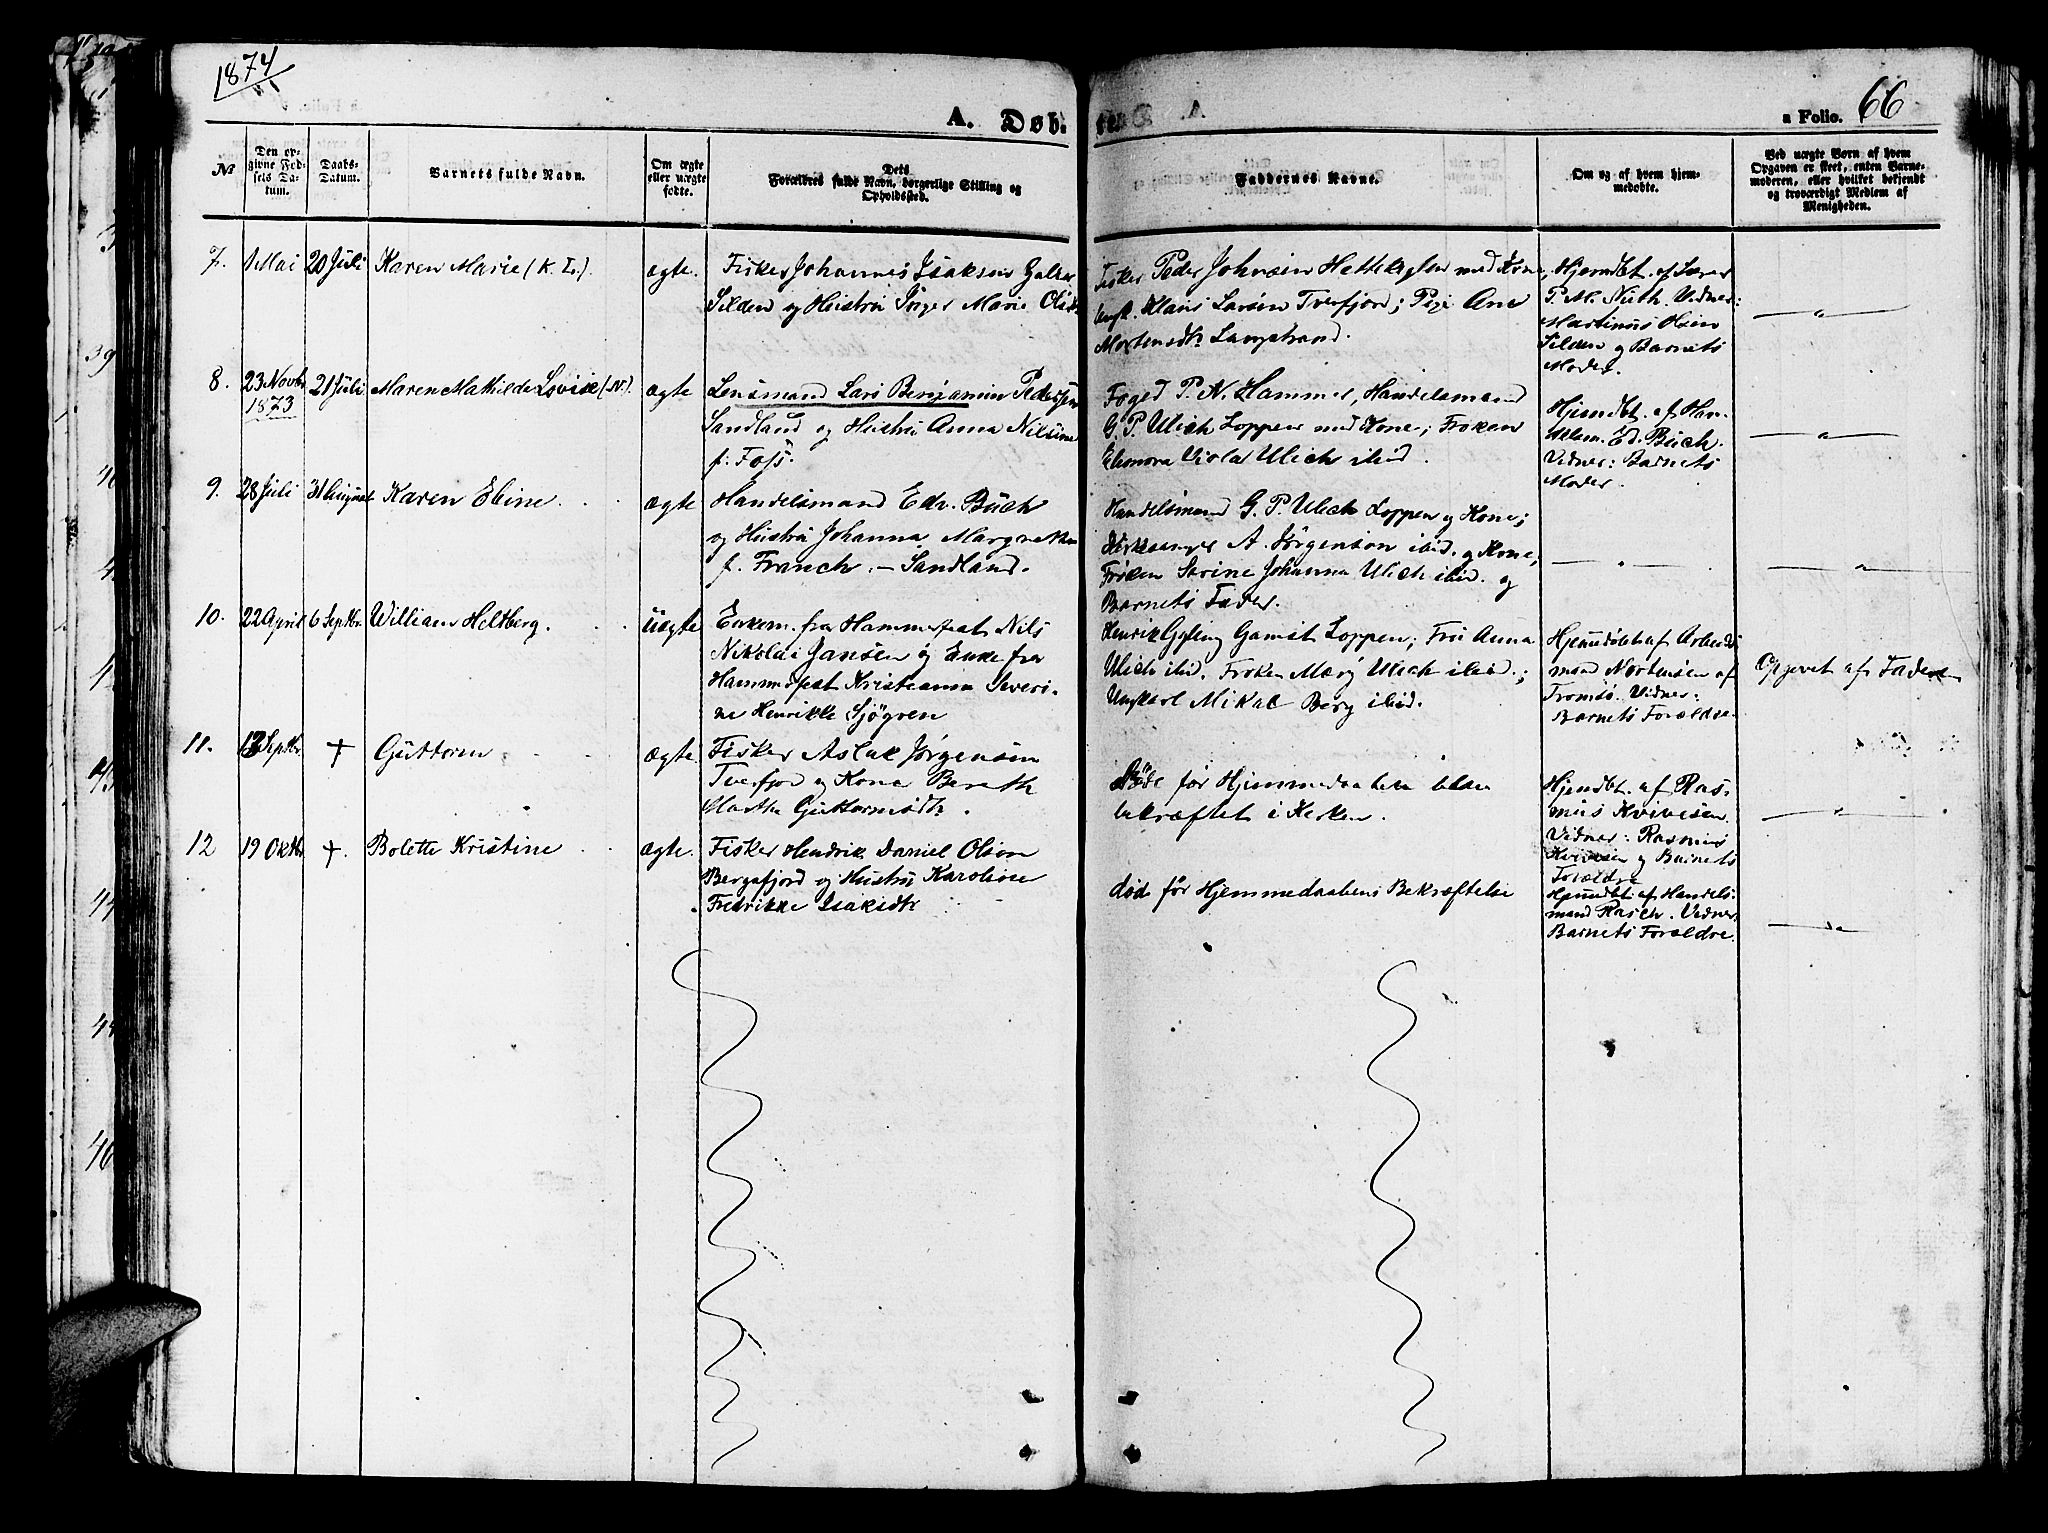 1874
A. Døb-
te.
a Folio. 66
№
Den op-
givne Fød-
sels Da-
tum.
Daabs-
Datum.
Barnets fulde Navn.
Om ægte
eller uægte
fødte.
Dets
Forældres fulde Navn, borgerlige Stilling og
Opholdssted.
Faddernes Navne.
Om og af hvem hjem-
medøbte.
Ved uægte Børn af hvem
Opgaven er skeet, enten Barne-
moderen, eller hvilket bekjendt
og troværdigt Medlem af
Menigheden.
7. 1 Mai 20 Juli Karen Marie (K. L.). ægte. Fisker Johannes Isaksen
Silden og Hustru Inger Marie Olsdt
Fisker Peder Johnsen med Kone,
Ungk. Hans Larsen Tverfjord; Pige Ane
Mortensdtr Langstrand.
Hjemdbt. af Lærer
P. M. Vidner:
Martinus
Silden og Barnets
Moder.
— " —
8. 23 Novbr 1873 21 Juli Maren Mathilde Lovise (N.). ægte Lensmand Lars Benjamin Pedersen
Sandland og Hustru Anna Nilsine
f. Foss.
Foged P. N. Hammer, Handelsmand
G. P. Ulich Loppen med Kone; Frøken
Eleonora Viola Ulich ibid.
Hjemdbt. af Han-
delsm. Ed. Buch.
Vidner: Barnets
Moder.
— " —
9. 28 Juli 31 August Karen Eline ægte Handelsmand Edv. Buch
og Hustru Johanna Margrethe
f. Franch. – Sandland.
Handelsmand G. P. Ulich Loppen og Kone;
Kirkesanger A. Jørgenson ibid. og Kone;
Frøken Sarine Johanna Ulich ibid. og
Barnets Fader.
— " —
— " —
10. 22 April 6 Septbr. William Heltberg. uægte Enkem. fra Hammerfest Nils
Nikolai Jansen og Enke fra
Hammerfest Kristianna Severi-
ne Henrikke Sjøgren
Henrik Gyling Gamst Loppen; Fru Anna
Ulich ibid. Frøken Mary Ulich ibid.;
Ungkarl Mikal Berg ibid.
Hjemdøbt af Arbeids
mand Mortensen af
Tromsø. Vidner:
Barnets Forældre.
Opgivet af Faderen
11. 13 Septbr. + Guttorm ægte Fisker Aslak Jørgensen
Tverfjord og Kone Bereth
Martha Guttormsdtr.
Døde før Hjemmedaaben blev
bekræftet i Kirken.
Hjemdbt. af Ras-
mus Kvivesen.
Vidner: Rasmus
Kvivesen og Barnets
Forældre
— " —
12 19 Oktbr + . Bolette Kristine ægte. Fisker Hendrik Daniel Olsen
Bergsfjord og Hustru Karoline
Fredrikke Isaksdtr
død før Hjemmedaabens Bekræftelse
Hjemdbt af Handels
mand Rasch. Vidner,
Barnets Forældre.